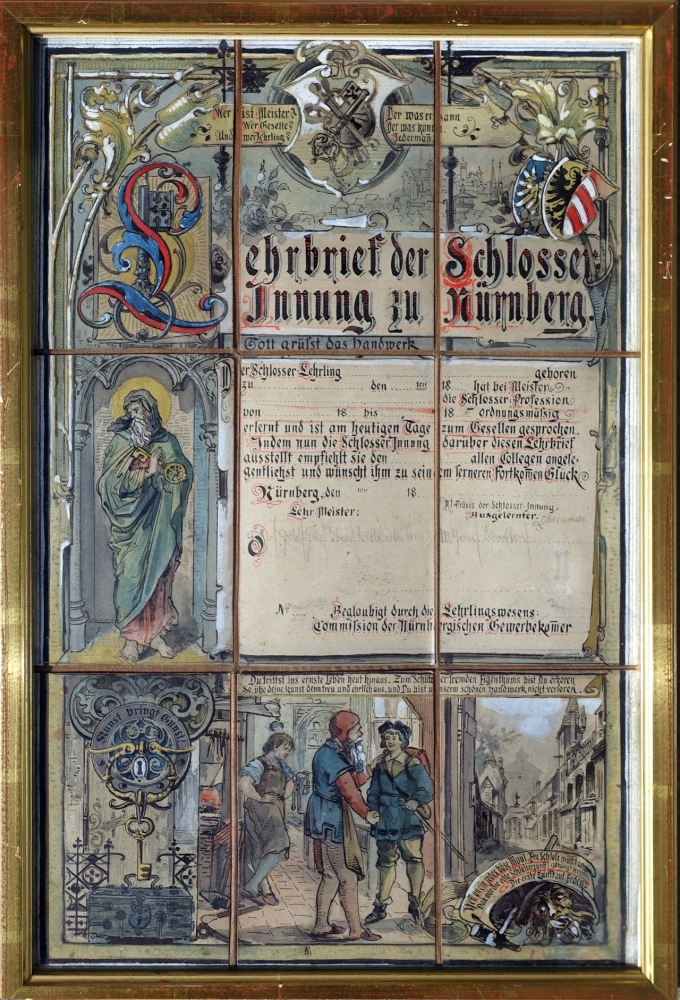 Wer ist Meister?
Wer Geselle?
Und wer Lehrling?
Der was ersann
Der was konn
Jedermann
Lehrbrief der Schlosser
Innung zu Nürnberg.
Gott grüsst das Handwerk
Der Schlosser-Lehrling geboren
zu den ten 18 hat bei Meister
die Schlosser-Profession
von 18 bis 18 ordnungsmäßig
erlernt und ist am heutigen Tage zum Gesellen gesprochen.
Indem nun die Schlosser Innung darüber diesen Lehrbrief
ausstellt empfiehlt sie den allen Collegen angele-
gentlichst und wünscht ihm zu seinem ferneren Fortkomen Glück
Nürnberg, den ten 18.
Lehr-Meister:
Präses der Schlosser-Innung.
Ausgelernter.
No Beglaubigt durch die Lehrlingswesens:
Commission der Nürnbergischen Gewerbekamer
Du trittst ins ernste Leben heut hinaus. Zum Schützer fremden Eigenthums bist Du erkoren
So übe deine Kunst dem treu und ehrlich aus, und Du bist unserm schönen Handwerk nicht verloren.
Kunst bringt Gunst